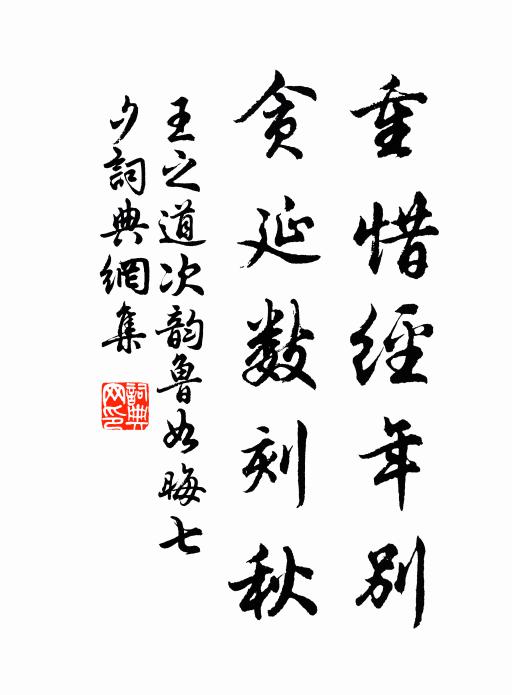 重惜經年別
貪延数刻秋
王之道次韵魯如晦七
夕詞典網集
詞典
网印